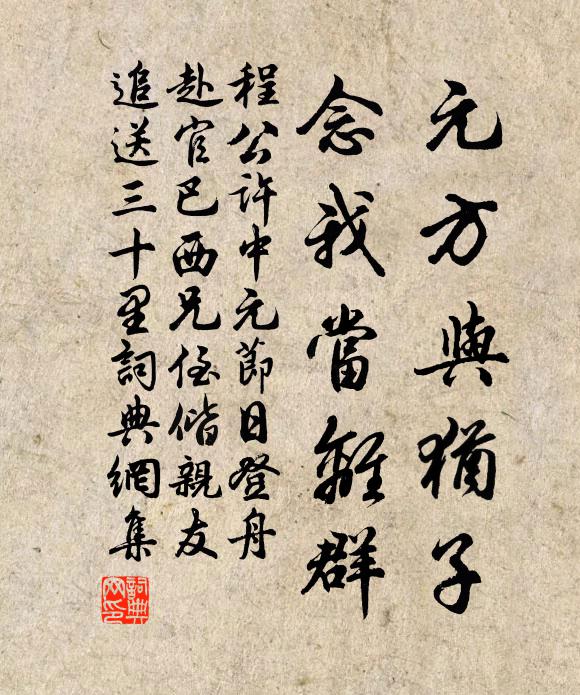 元方與猶子
念我當離群
程公許中元節日登舟
赴官巴西兄侄偕親友
追送三十里詞典網集
詞典